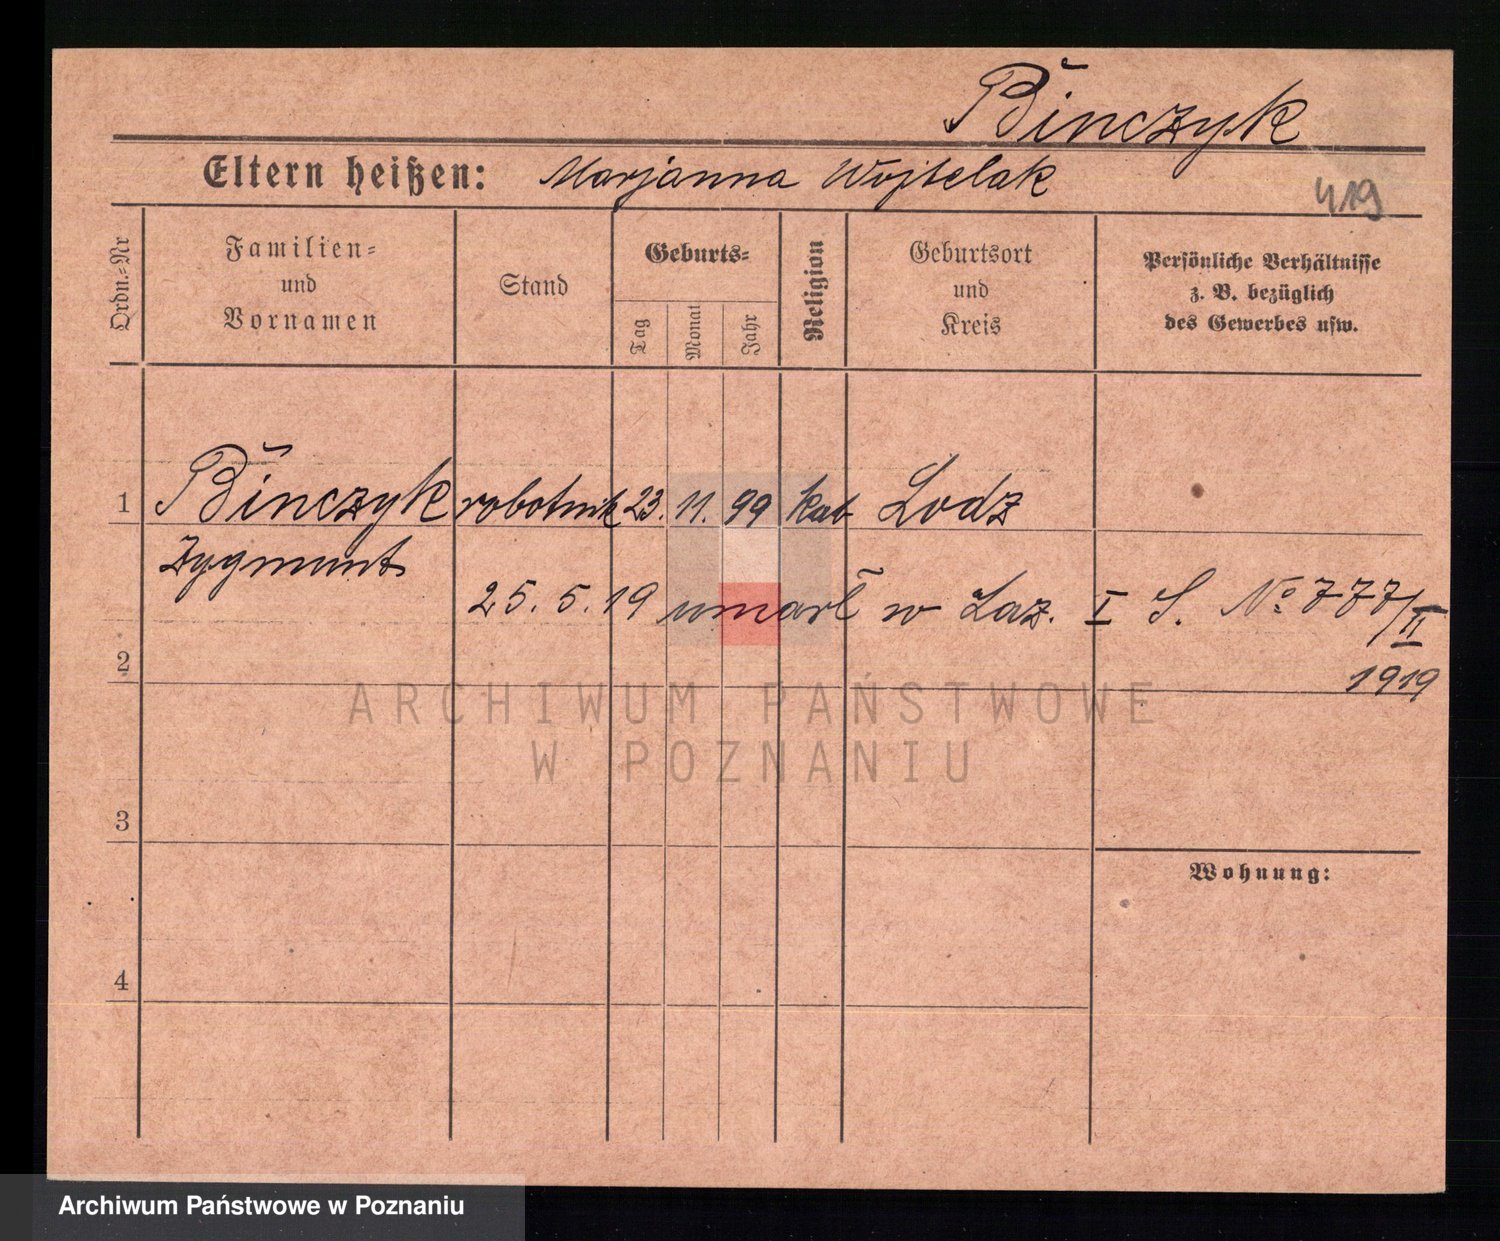 Binczyk
Eltern heißen: Marjanna Wojtelak
419
Ordn.=Nr
Familien=
und
Vornamen
Stand
Geburts=
Tag
Monat
Jahr
Religion
Geburtsort
und
Kreis
Persönliche Verhältnisse
z. B. bezüglich
des Gewerbes usw.
1 Binczyk robotnik 23. 11. 99 kat Lodz
Zygmunt
25. 5. 19 umarł w Laz. I S. No 777/II
1919
2
ARCHIWUM PAŃSTWOWE
W POZNANIU
3
Wohnung:
4
Archiwum Państwowe w Poznaniu